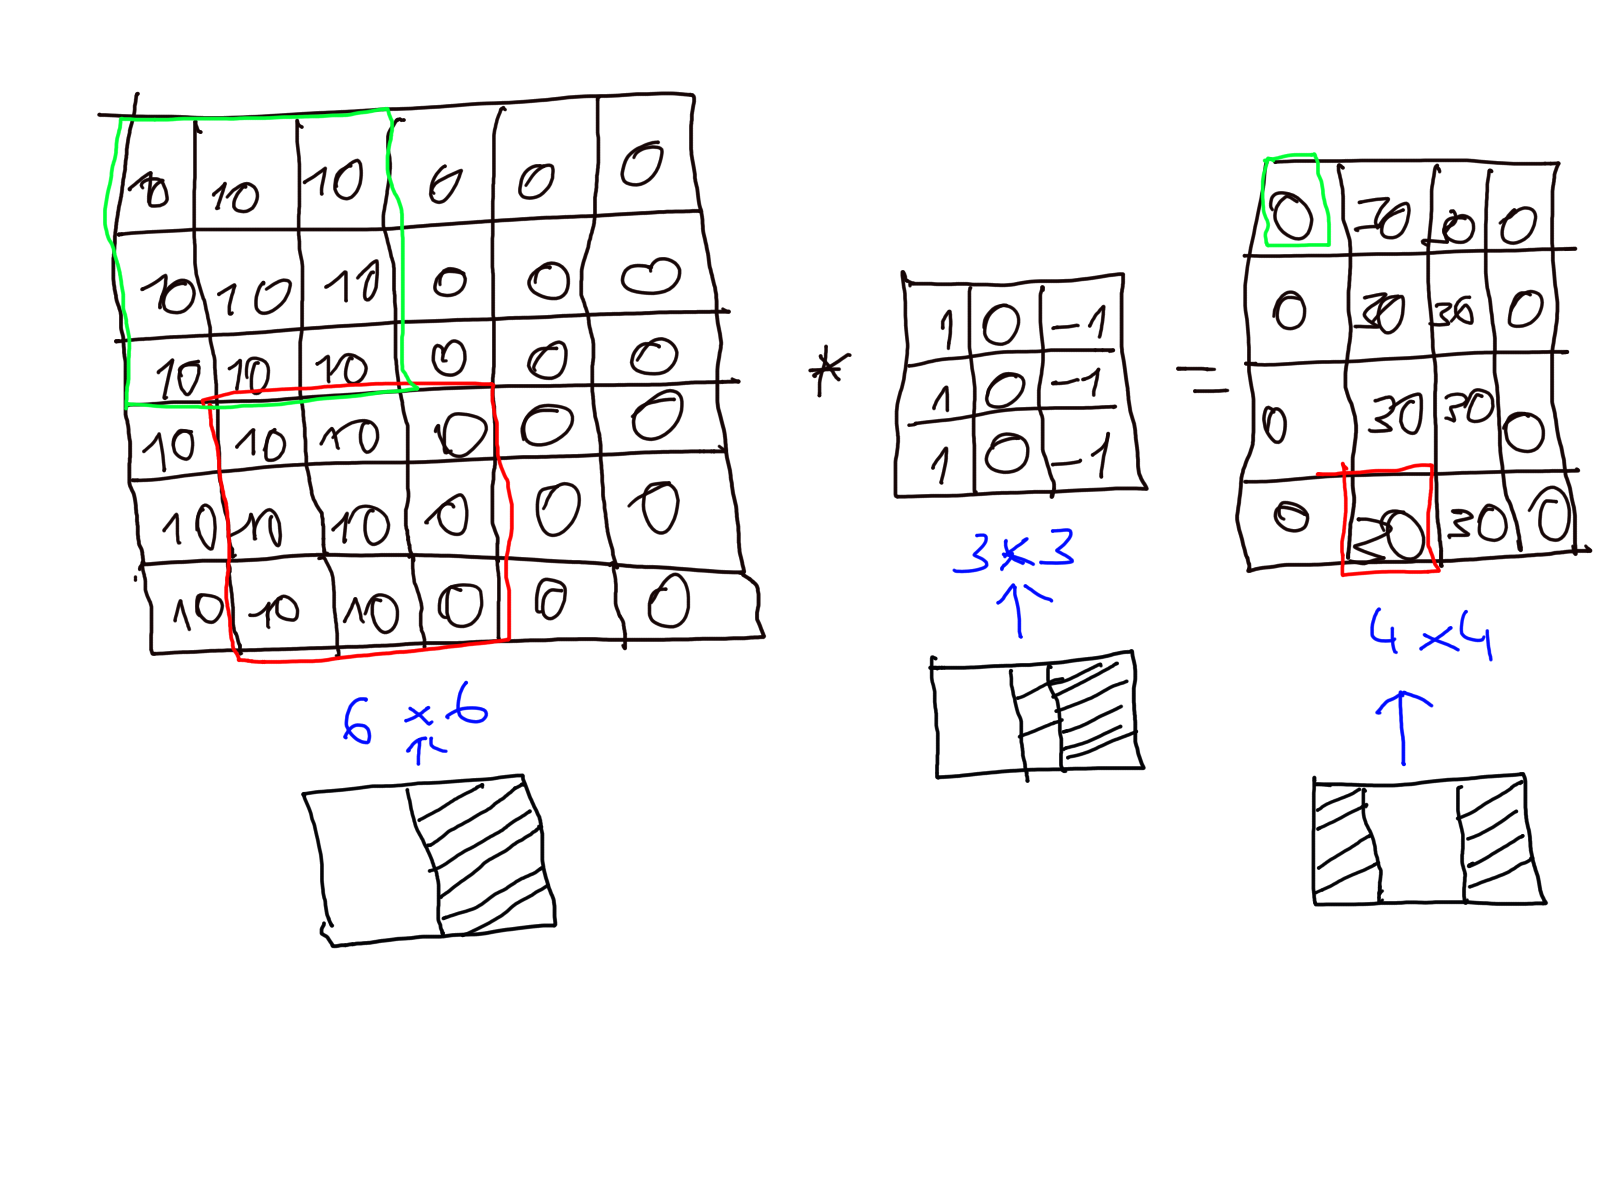 10 10 10 0 0 0
10 10 10 0 0 0
10 10 10 0 0 0
10 10 10 0 0 0
10 10 10 0 0 0
10 10 10 0 0 0
6 × 6
*
1 0 -1
1 0 -1
1 0 -1
3 × 3
=
0 30 30 0
0 30 30 0
0 30 30 0
0 30 30 0
4 × 4